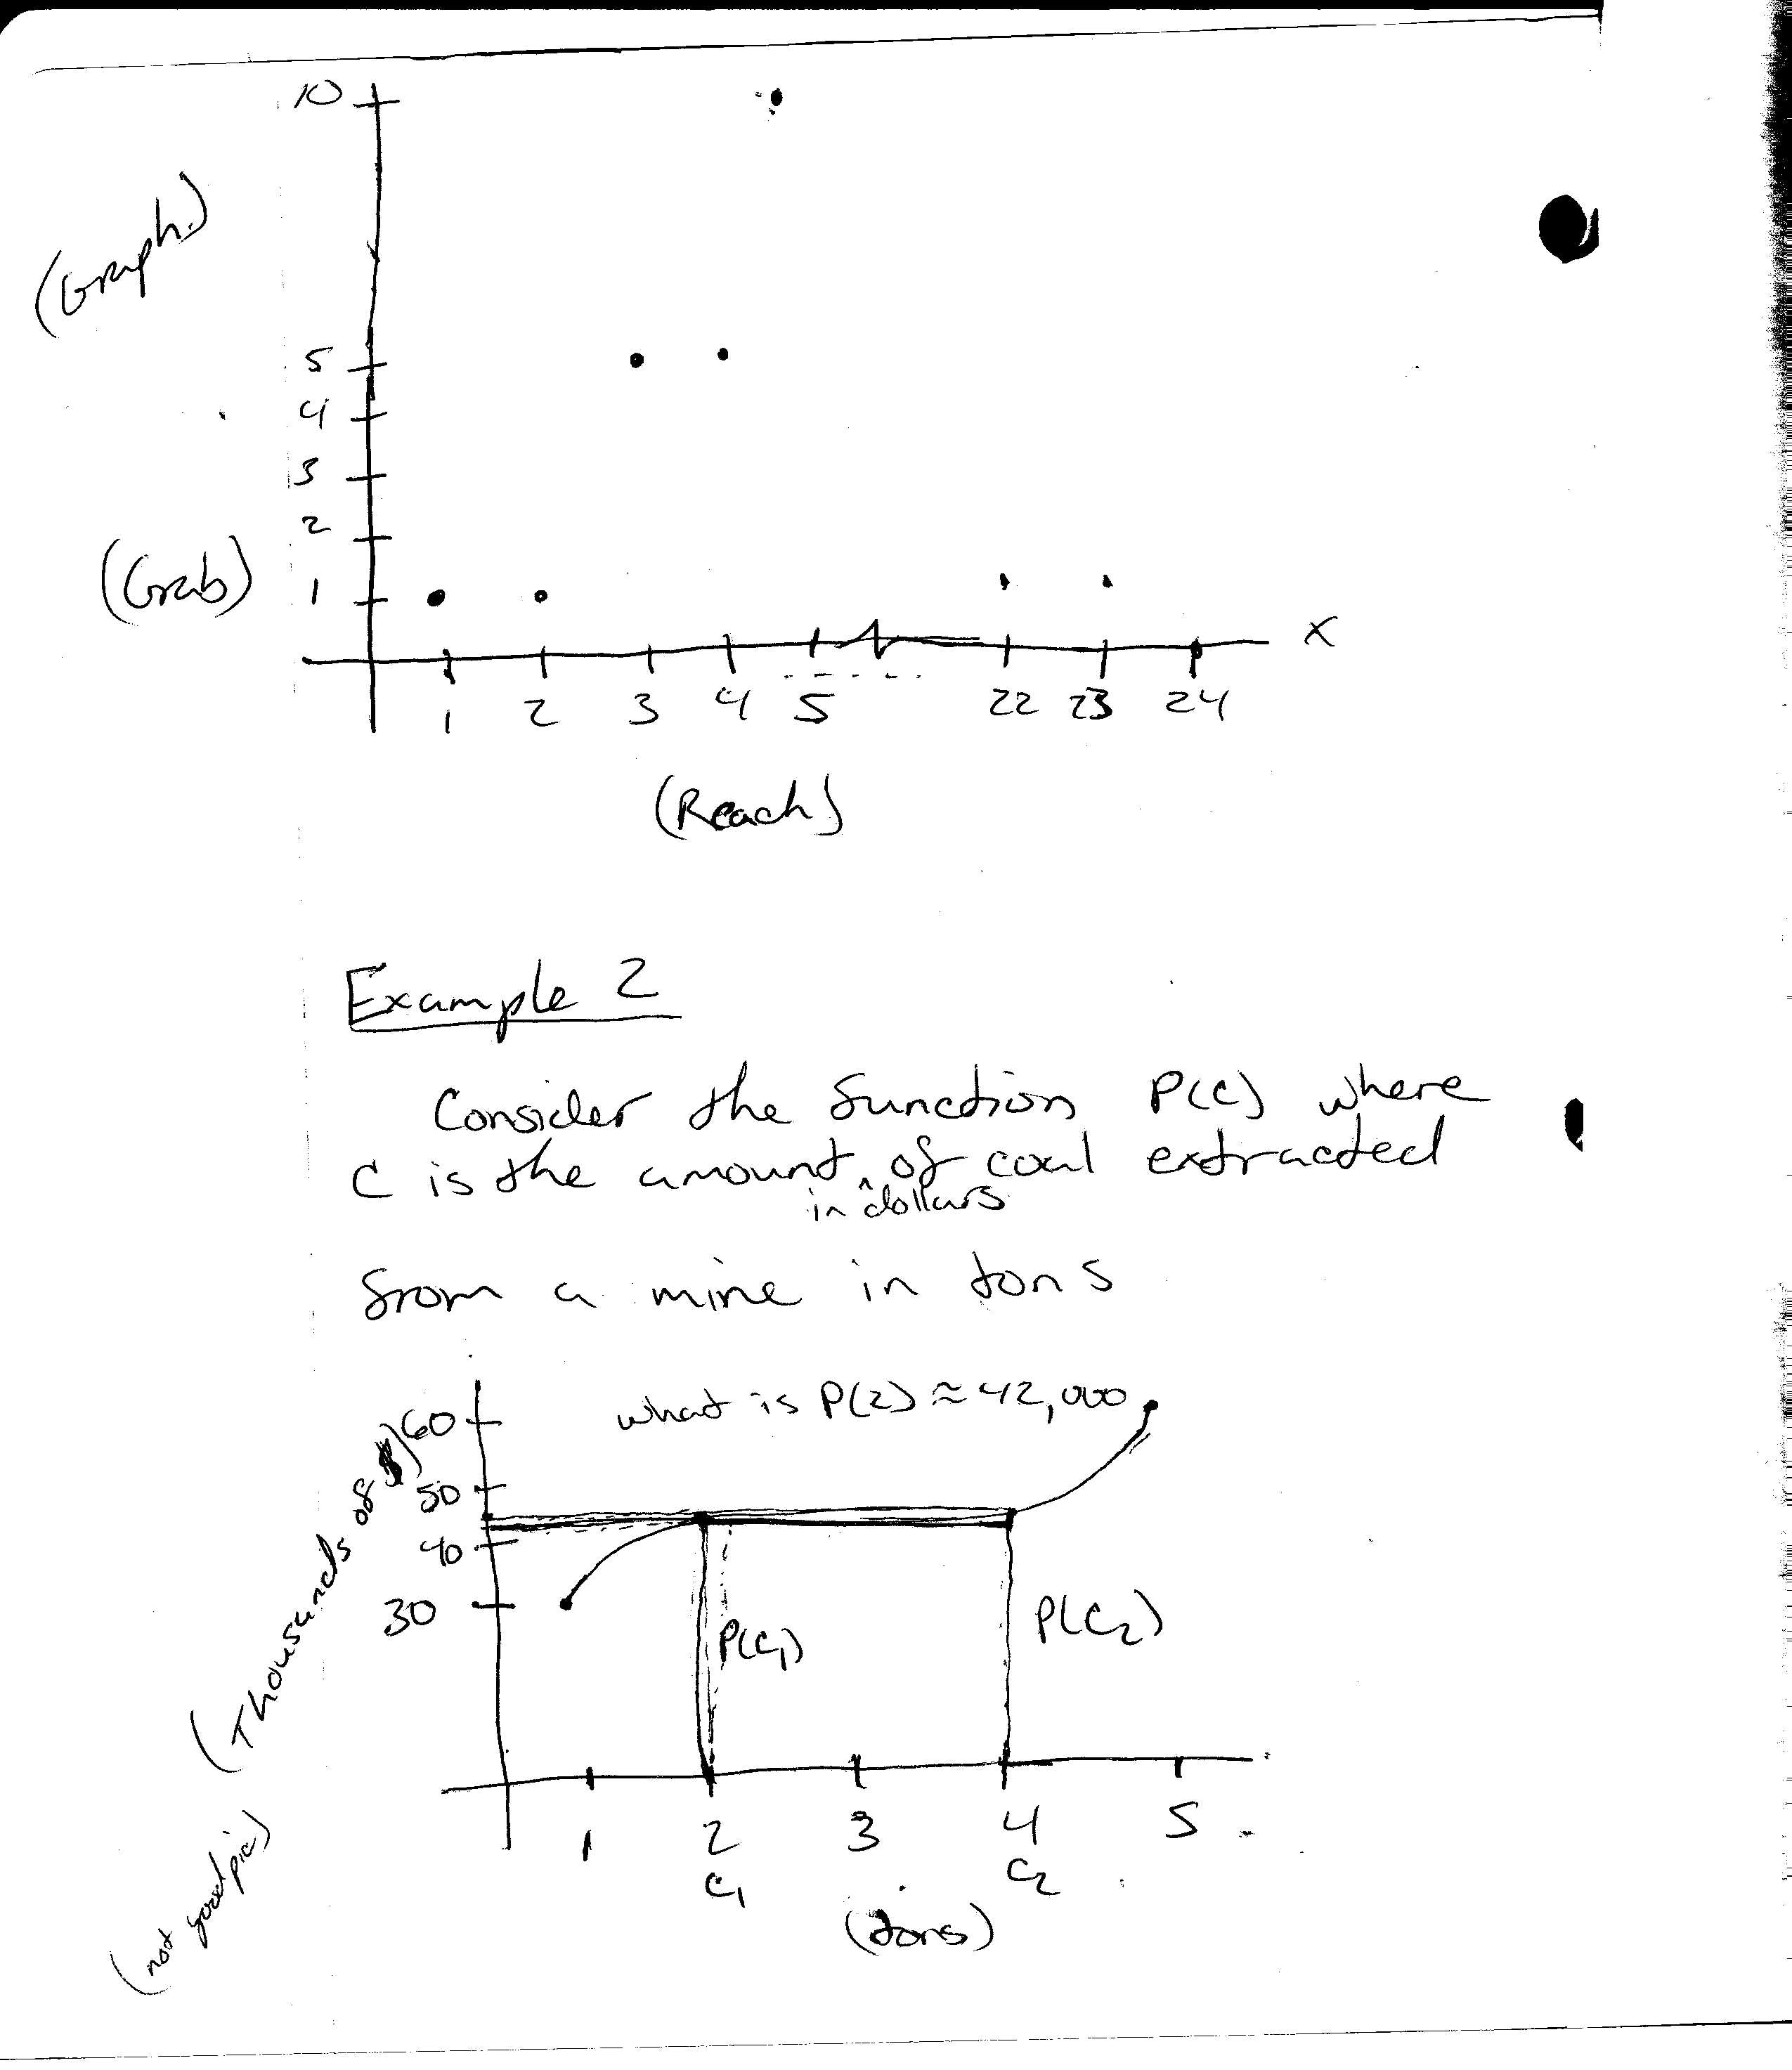 10
(Graph)
5
4
3
2
(Grab) 1
x
1 2 3 4 5 22 23 24
(Reach)
Example 2
Consider the function P(c) where
C is the amount ^ of coal extracted
in dollars
from a mine in tons
what is P(2) ≈ 42,000
60
50
40
30
(Thousands of $)
P(C₁)
P(C₂)
1 2 3 4 5
C₁ C₂
(tons)
(not good pic)